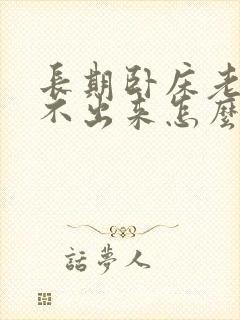 長期卧床老
不出来怎麼
話夢人